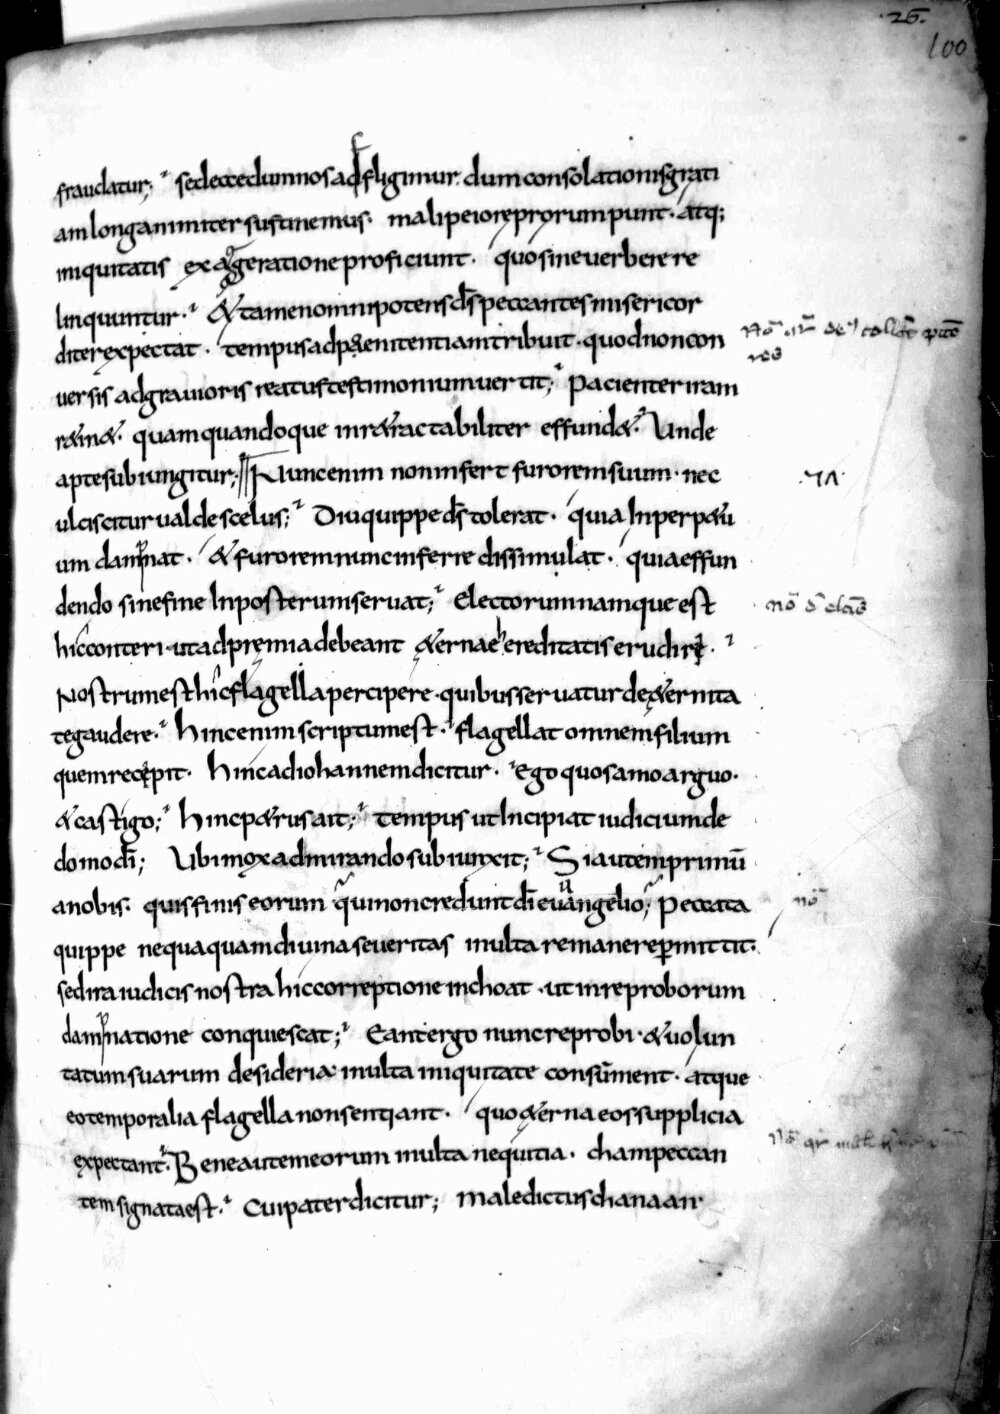 .26.
100
fraudatur; sed ecce dum nos adfligimur. dum consolationis grati
am longanimiter sustinemus. mali peiores prorumpunt. atq;
iniquitatis exaggeratione proficiunt. quo sine verbere re
linquuntur. & tamen omnipotens d̄s peccantes misericor
diter expectat. tempus ad pęnitentiam tribuit. quod non con
uersis ad grauioris reatus testimonium uertit; Pacienter iram
r&in&. quam quandoque inr&ractabiliter effund&. Unde
apte subiungitur; Nunc enim non infert furorem suum. nec
ulciscitur ualde scelus; Diu quippe d̄s tolerat. quia Inperp&u
um dampnat. & furorem nunc inferre dissimulat. quia effun
dendo sine fine Inposterum seruat; Electorum namque est
hic conteri. ut ad pręmia debeant &ernae hereditatis erudiri.
Nostrum est hic flagella percipere. quibus seruatur de &ernita
te gaudere. hinc enim scriptum est. flagellat omnem filium
quem recępit. hinc ad iohannem dicitur. Ego quos amo arguo.
& castigo; hinc p&rus ait; tempus ut Incipiat iudicium de
domo dī; Ubi mox admirando subiunxit; Si autem primū
a nobis. quis finis eorum qui non credunt dī euuangelio; Peccata
quippe nequaquam diuina seueritas inulta remanere permittit.
sed ira iudicis nostra hic correptione inchoat. ut in reproborum
dampnatione conquiescat; Eant ergo nunc reprobi. & uolun
tatum suarum desideria inulta iniquitate consumment. atque
eo temporalia flagella non sentiant. quo &erna eos supplicia
expectant. Bene autem eorum inulta nequitia. cham peccan
tem signata est. Cui pater dicitur; maledictus chanaan
nō